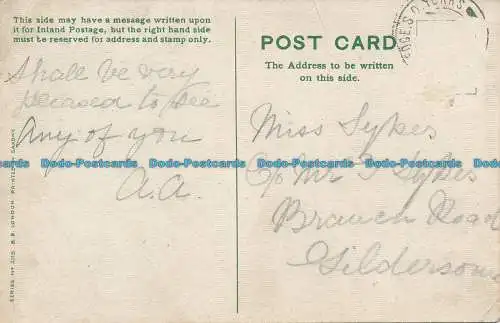 This side may have a message written upon
it for Inland Postage, but the right hand side
must be reserved for address and stamp only.
Shall be very
pleased to see
Any of you
A.A.
POST CARD
The Address to be written
on this side.
Miss Sykes
C/o Mr Sykes
Branch Road
Gildersome
Dodo-Postcards Dodo-Postcards Dodo-Postcards Dodo-Postcards
B.B. LONDON.